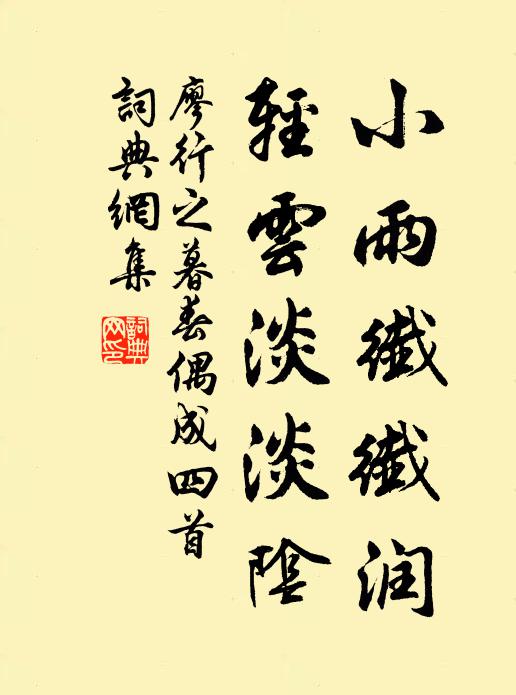 小雨纖纖润
輕雲淡淡陰
廖行之暮春偶成四首
詞典網集
詞典网印